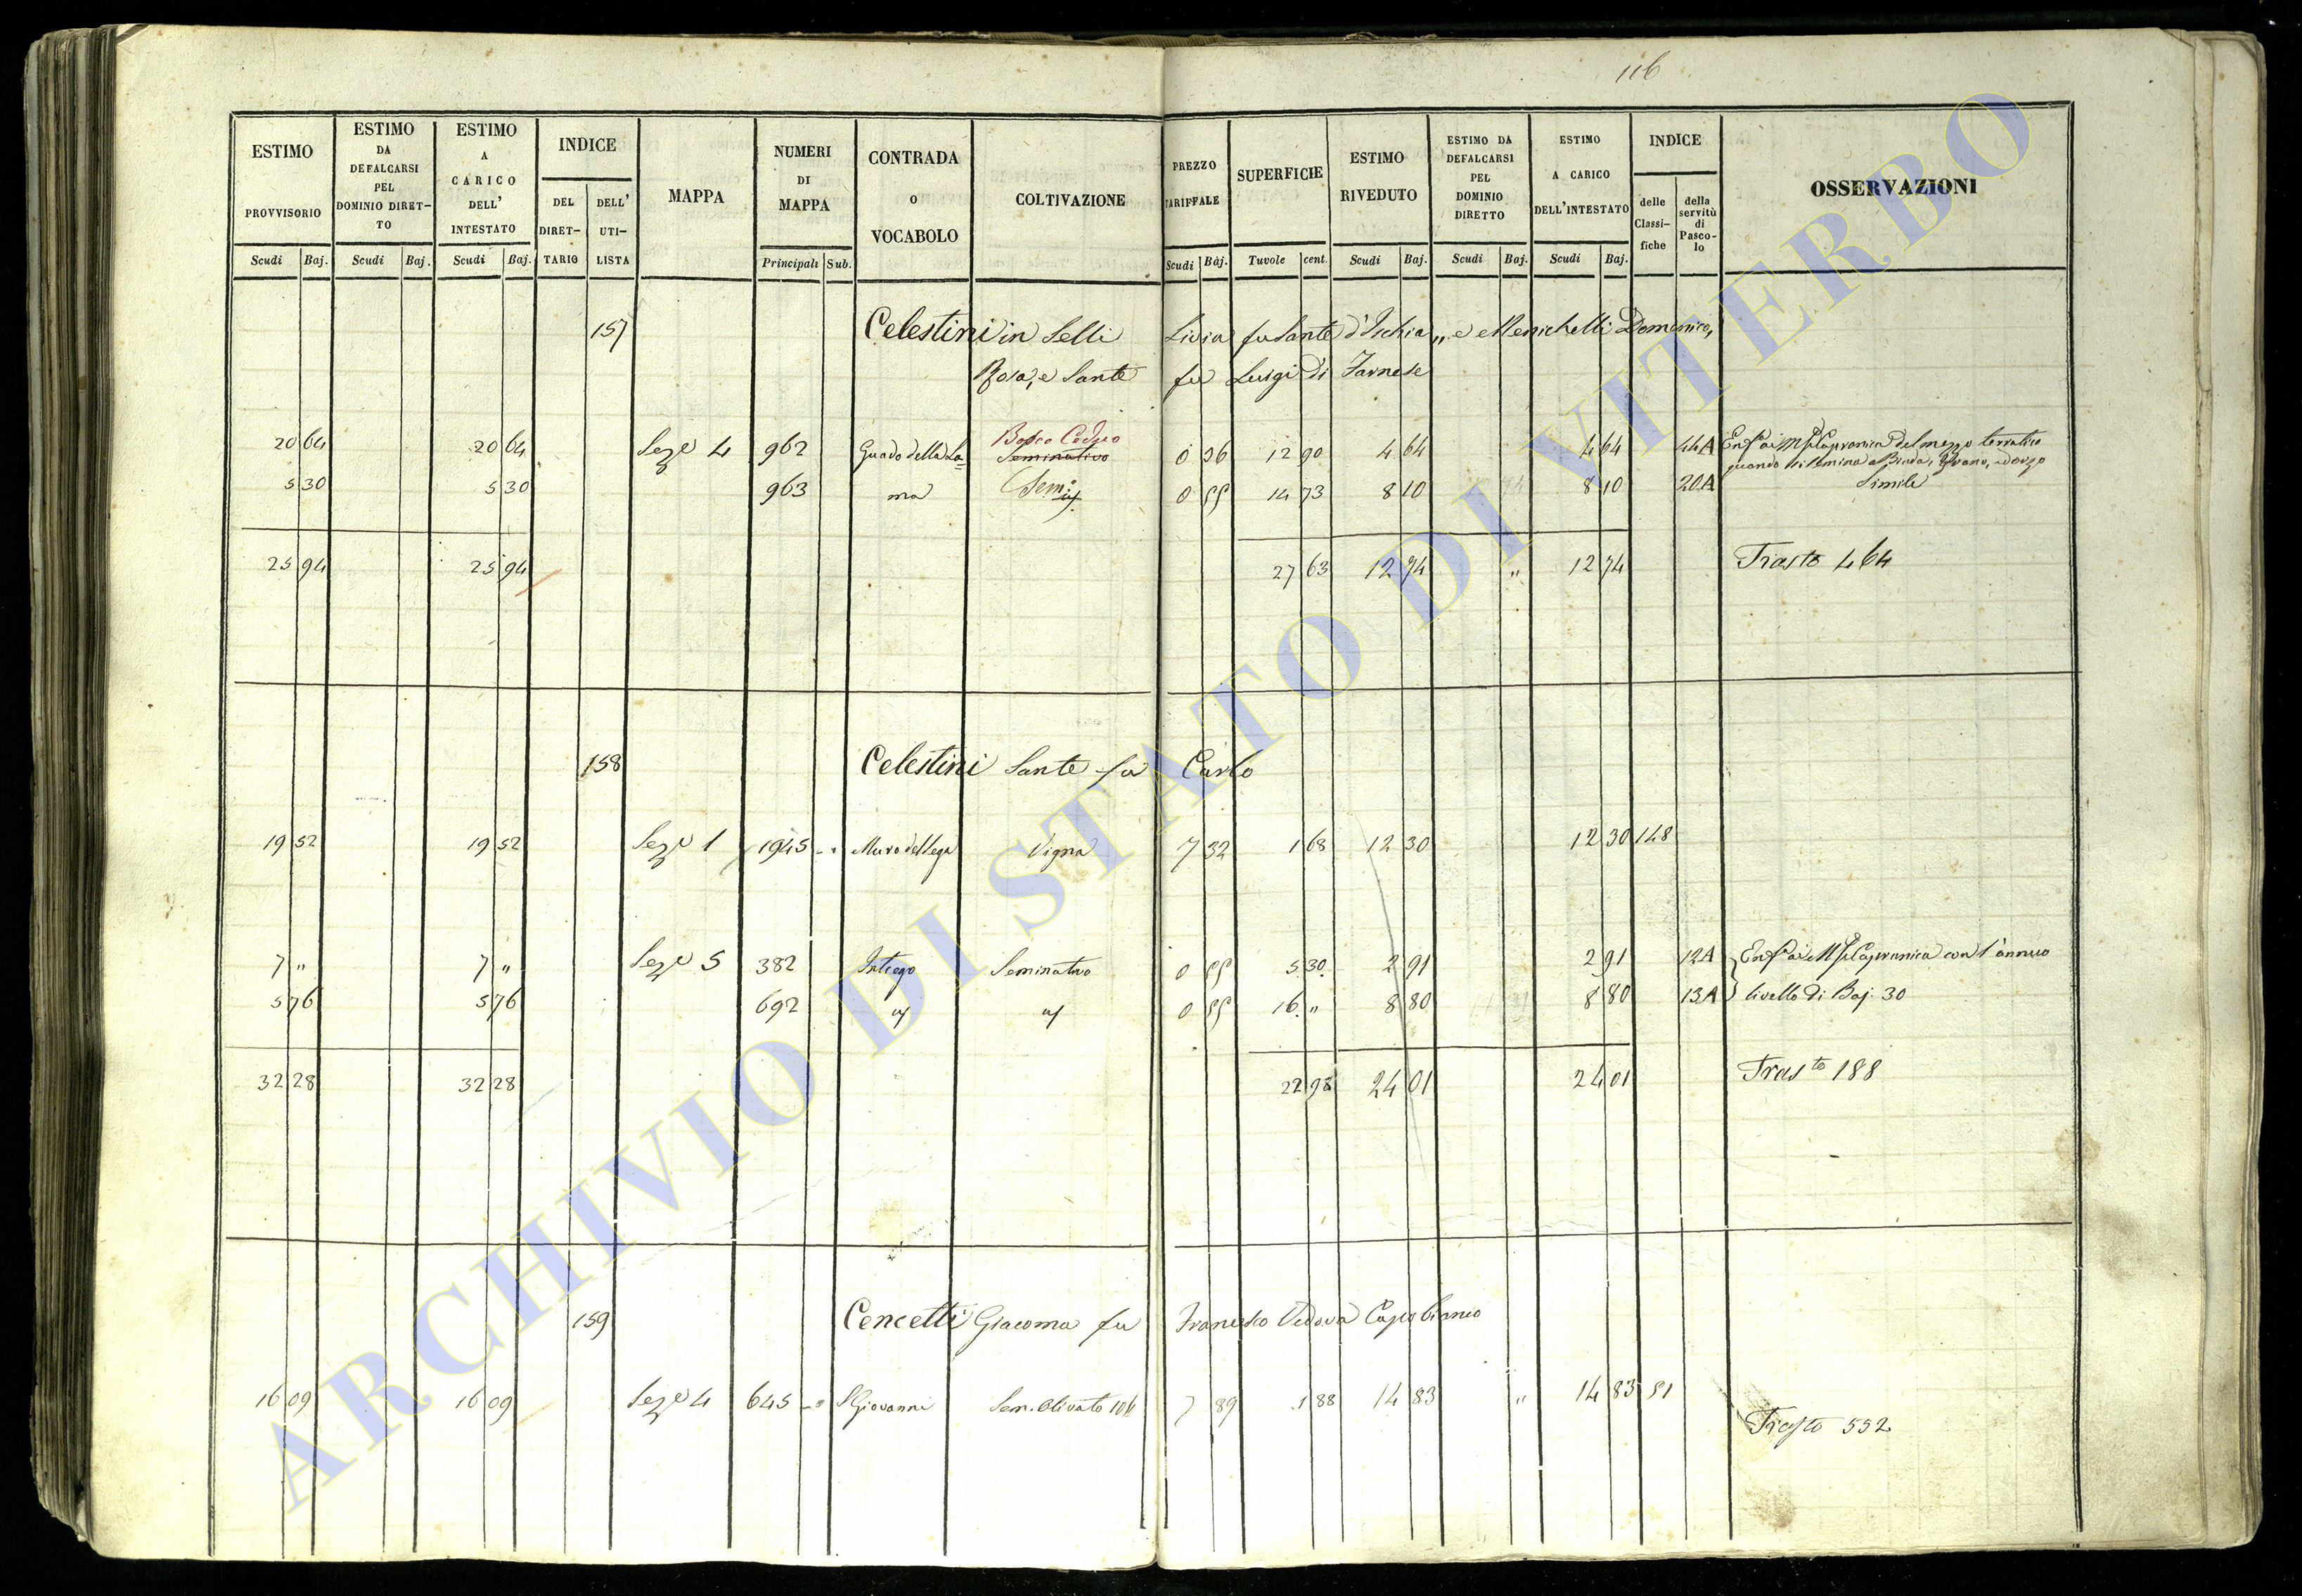 116
ESTIMO PROVVISORIO Scudi Baj.
ESTIMO DA DEFALCARSI PEL DOMINIO DIRET- TO Scudi Baj.
ESTIMO A CARICO DELL' INTESTATO Scudi Baj.
INDICE DEL DIRET- TARIO DELL' UTI- LISTA
MAPPA
NUMERI DI MAPPA Principali Sub.
CONTRADA o VOCABOLO
COLTIVAZIONE
PREZZO TARIFFALE Scudi Baj.
SUPERFICIE Tavole cent.
ESTIMO RIVEDUTO Scudi Baj.
ESTIMO DA DEFALCARSI PEL DOMINIO DIRETTO Scudi Baj.
ESTIMO A CARICO DELL'INTESTATO Scudi Baj.
INDICE delle Classi- fiche della servitù di Pasco- lo
OSSERVAZIONI
157 Celestini in Selli Livia fu Sante d'Ischia „ e Menichetti Domenico,
Rosa, e Sante fu Luigi di Farnese
20 64 20 64 Sez.e 4 962 Guado della La= Bosco Ceduo Seminativo 0 36 12 90 4 64 4 64 44A del mezzo terratico
quando si semina a Biada, Grano, ed orzo
5 30 5 30 963 ma Sem: 0 55 14 73 8 10 8 10 20A Simile
25 94 25 94 27 63 12 74 „ 12 74 Trasto 464
158 Celestini Sante fu Carlo
19 52 19 52 Sez.e 1 1945 Muro del Sega Vigna 7 32 1 68 12 30 12 30 148
7 „ 7 „ Sez.e 5 382 Intrego Seminativo 0 55 5 30 2 91 2 91 12A con l'annuo
5 76 5 76 692 0 55 16 „ 8 80 8 80 13A livello di Baj. 30
32 28 32 28 22 98 24 01 24 01 Trasto 188
159 Cencetti Giacoma fu Francesco Vedova Capobianco
16 09 16 09 Sez.e 4 645 S Giovanni Sem. Olivato 7 89 1 88 14 83 „ 14 83 51
Trasto 552
ARCHIVIO DI STATO DI VITERBO